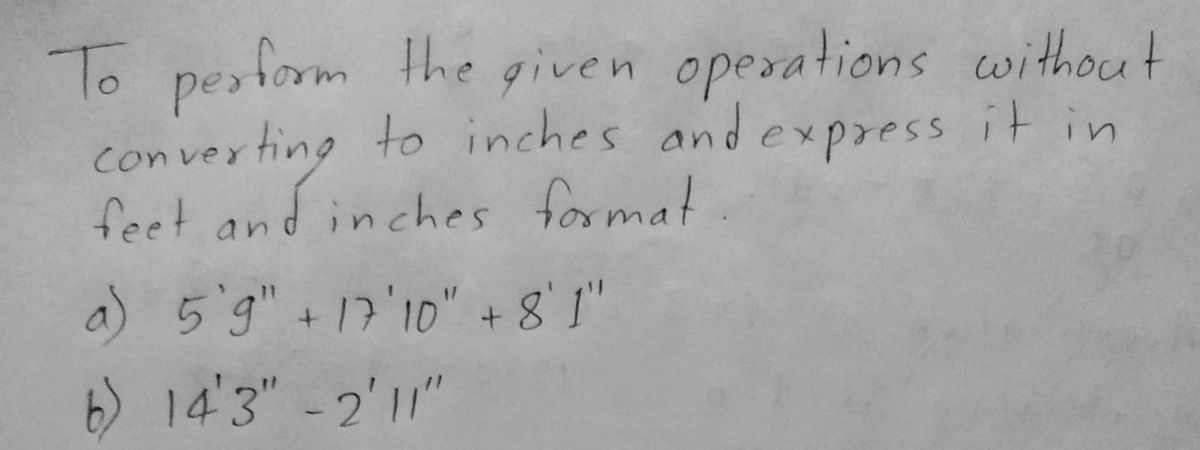 To perform the given operations without
converting to inches and express it in
feet and inches format.
a) 5'9" + 17'10" + 8'1"
b) 14'3" - 2'11"